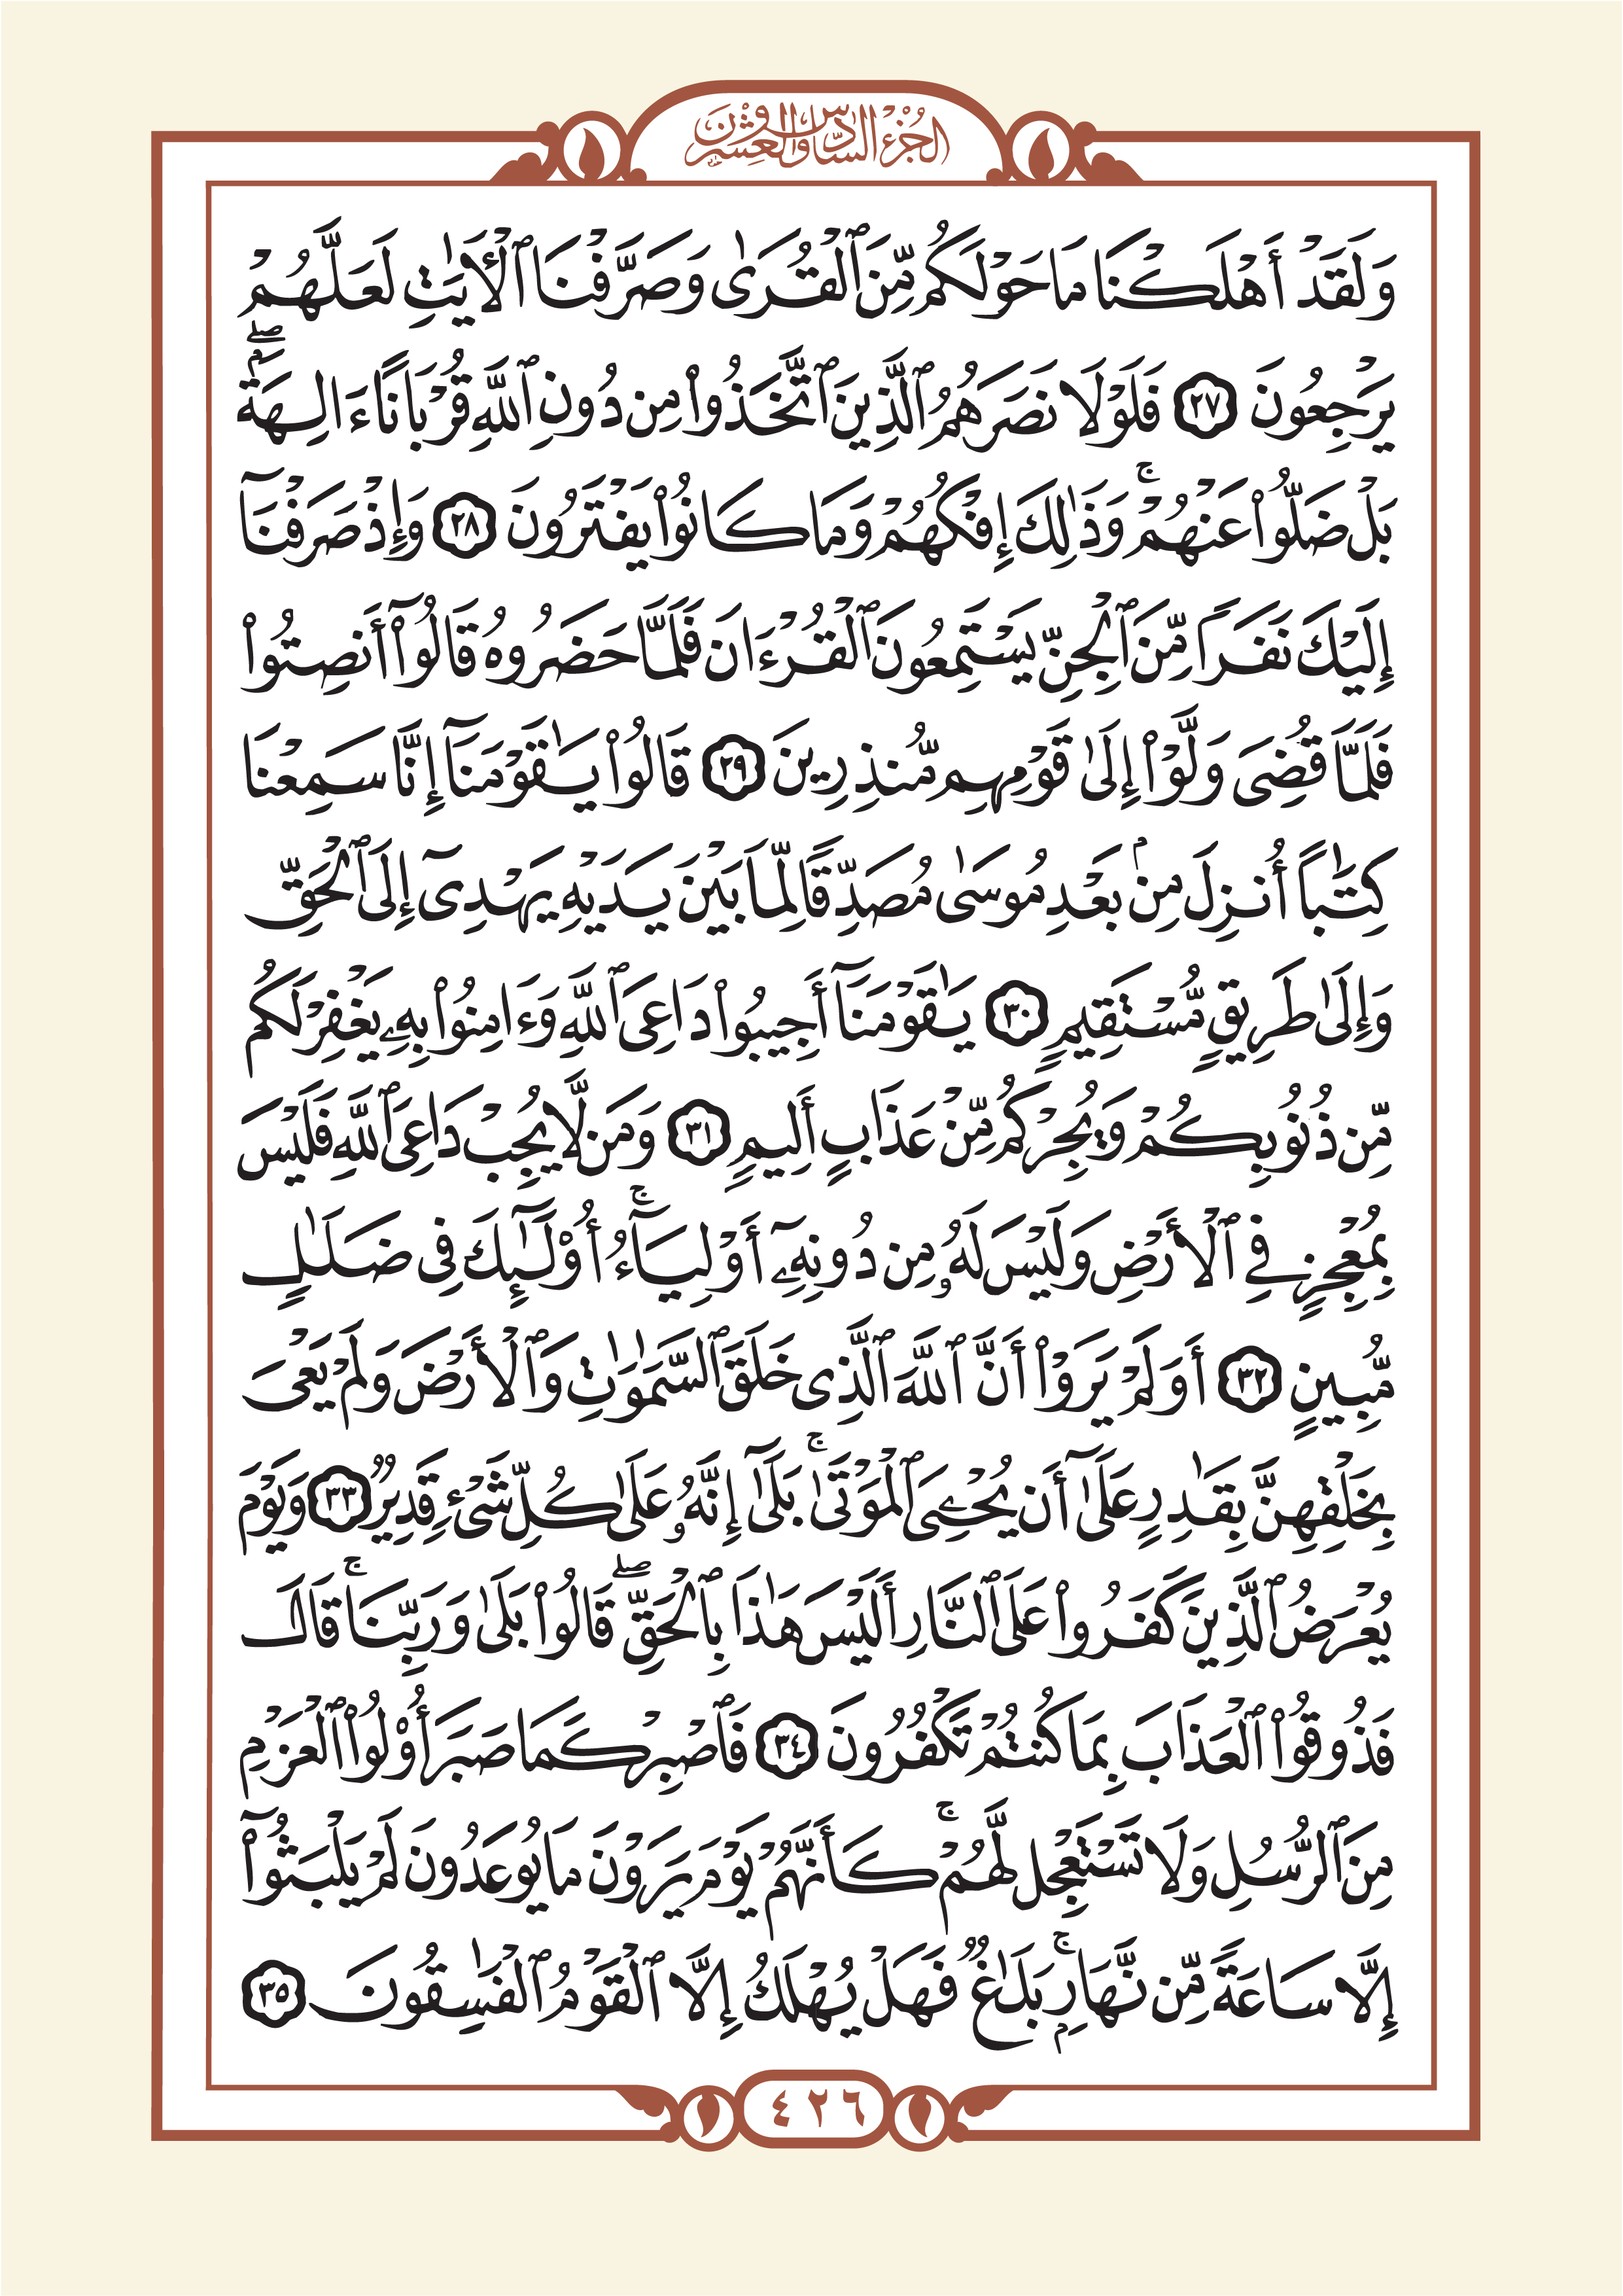 الجزء السادس والعشرون
وَلَقَدْ أَهْلَكْنَا مَا حَوْلَكُم مِّنَ ٱلْقُرَىٰ وَصَرَّفْنَا ٱلْأٓيَٰتِ لَعَلَّهُمْ
يَرْجِعُونَ ٢٧ فَلَوْلَا نَصَرَهُمُ ٱلَّذِينَ ٱتَّخَذُوا۟ مِن دُونِ ٱللَّهِ قُرْبَانًا ءَالِهَةَۢ ۖ
بَلْ ضَلُّوا۟ عَنْهُمْ ۚ وَذَٰلِكَ إِفْكُهُمْ وَمَا كَانُوا۟ يَفْتَرُونَ ٢٨ وَإِذْ صَرَفْنَآ
إِلَيْكَ نَفَرًا مِّنَ ٱلْجِنِّ يَسْتَمِعُونَ ٱلْقُرْءَانَ فَلَمَّا حَضَرُوهُ قَالُوٓا۟ أَنصِتُوا۟
فَلَمَّا قُضِىَ وَلَّوْا۟ إِلَىٰ قَوْمِهِم مُّنذِرِينَ ٢٩ قَالُوا۟ يَٰقَوْمَنَآ إِنَّا سَمِعْنَا
كِتَٰبًا أُنزِلَ مِنۢ بَعْدِ مُوسَىٰ مُصَدِّقًا لِّمَا بَيْنَ يَدَيْهِ يَهْدِىٓ إِلَى ٱلْحَقِّ
وَإِلَىٰ طَرِيقٍ مُّسْتَقِيمٍ ٣٠ يَٰقَوْمَنَآ أَجِيبُوا۟ دَاعِىَ ٱللَّهِ وَءَامِنُوا۟ بِهِۦ يَغْفِرْ لَكُم
مِّن ذُنُوبِكُمْ وَيُجِرْكُم مِّنْ عَذَابٍ أَلِيمٍ ٣١ وَمَن لَّا يُجِبْ دَاعِىَ ٱللَّهِ فَلَيْسَ
بِمُعْجِزٍ فِى ٱلْأَرْضِ وَلَيْسَ لَهُۥ مِن دُونِهِۦٓ أَوْلِيَآءُ ۚ أُو۟لَٰٓئِكَ فِى ضَلَٰلٍ
مُّبِينٍ ٣٢ أَوَلَمْ يَرَوْا۟ أَنَّ ٱللَّهَ ٱلَّذِى خَلَقَ ٱلسَّمَٰوَٰتِ وَٱلْأَرْضَ وَلَمْ يَعْىَ
بِخَلْقِهِنَّ بِقَٰدِرٍ عَلَىٰٓ أَن يُحْۦِىَ ٱلْمَوْتَىٰ ۚ بَلَىٰٓ إِنَّهُۥ عَلَىٰ كُلِّ شَىْءٍ قَدِيرٌ ٣٣ وَيَوْمَ
يُعْرَضُ ٱلَّذِينَ كَفَرُوا۟ عَلَى ٱلنَّارِ أَلَيْسَ هَٰذَا بِٱلْحَقِّ ۖ قَالُوا۟ بَلَىٰ وَرَبِّنَا ۚ قَالَ
فَذُوقُوا۟ ٱلْعَذَابَ بِمَا كُنتُمْ تَكْفُرُونَ ٣٤ فَٱصْبِرْ كَمَا صَبَرَ أُو۟لُوا۟ ٱلْعَزْمِ
مِنَ ٱلرُّسُلِ وَلَا تَسْتَعْجِل لَّهُمْ ۚ كَأَنَّهُمْ يَوْمَ يَرَوْنَ مَا يُوعَدُونَ لَمْ يَلْبَثُوٓا۟
إِلَّا سَاعَةً مِّن نَّهَارِۭ ۚ بَلَٰغٌ فَهَلْ يُهْلَكُ إِلَّا ٱلْقَوْمُ ٱلْفَٰسِقُونَ ٣٥
٤٢٦